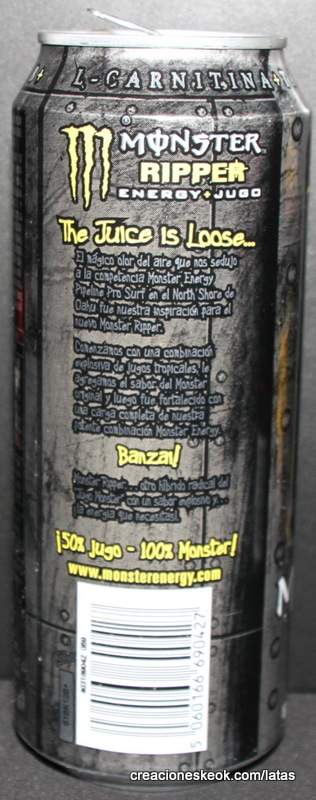 L-CARNITINA
MONSTER
RIPPER
ENERGY+JUGO
The Juice is Loose...
El mágico olor del aire que nos sedujo
a la competencia Monster Energy
Pipeline Pro Surf en el North Shore de
Oahu fue nuestra inspiración para el
nuevo Monster Ripper.
Comenzamos con una combinación
explosiva de jugos tropicales, le
agregamos el sabor del Monster
original y luego fue fortalecido con
una carga completa de nuestra
patente combinación Monster Energy.
Banzai!
Monster Ripper... otro híbrido radical del
jugo Monster con un sabor explosivo y...
la energía que necesitas!
¡50% Jugo - 100% Monster!
www.monsterenergy.com
5 060166 690427
creacioneskeok.com/latas